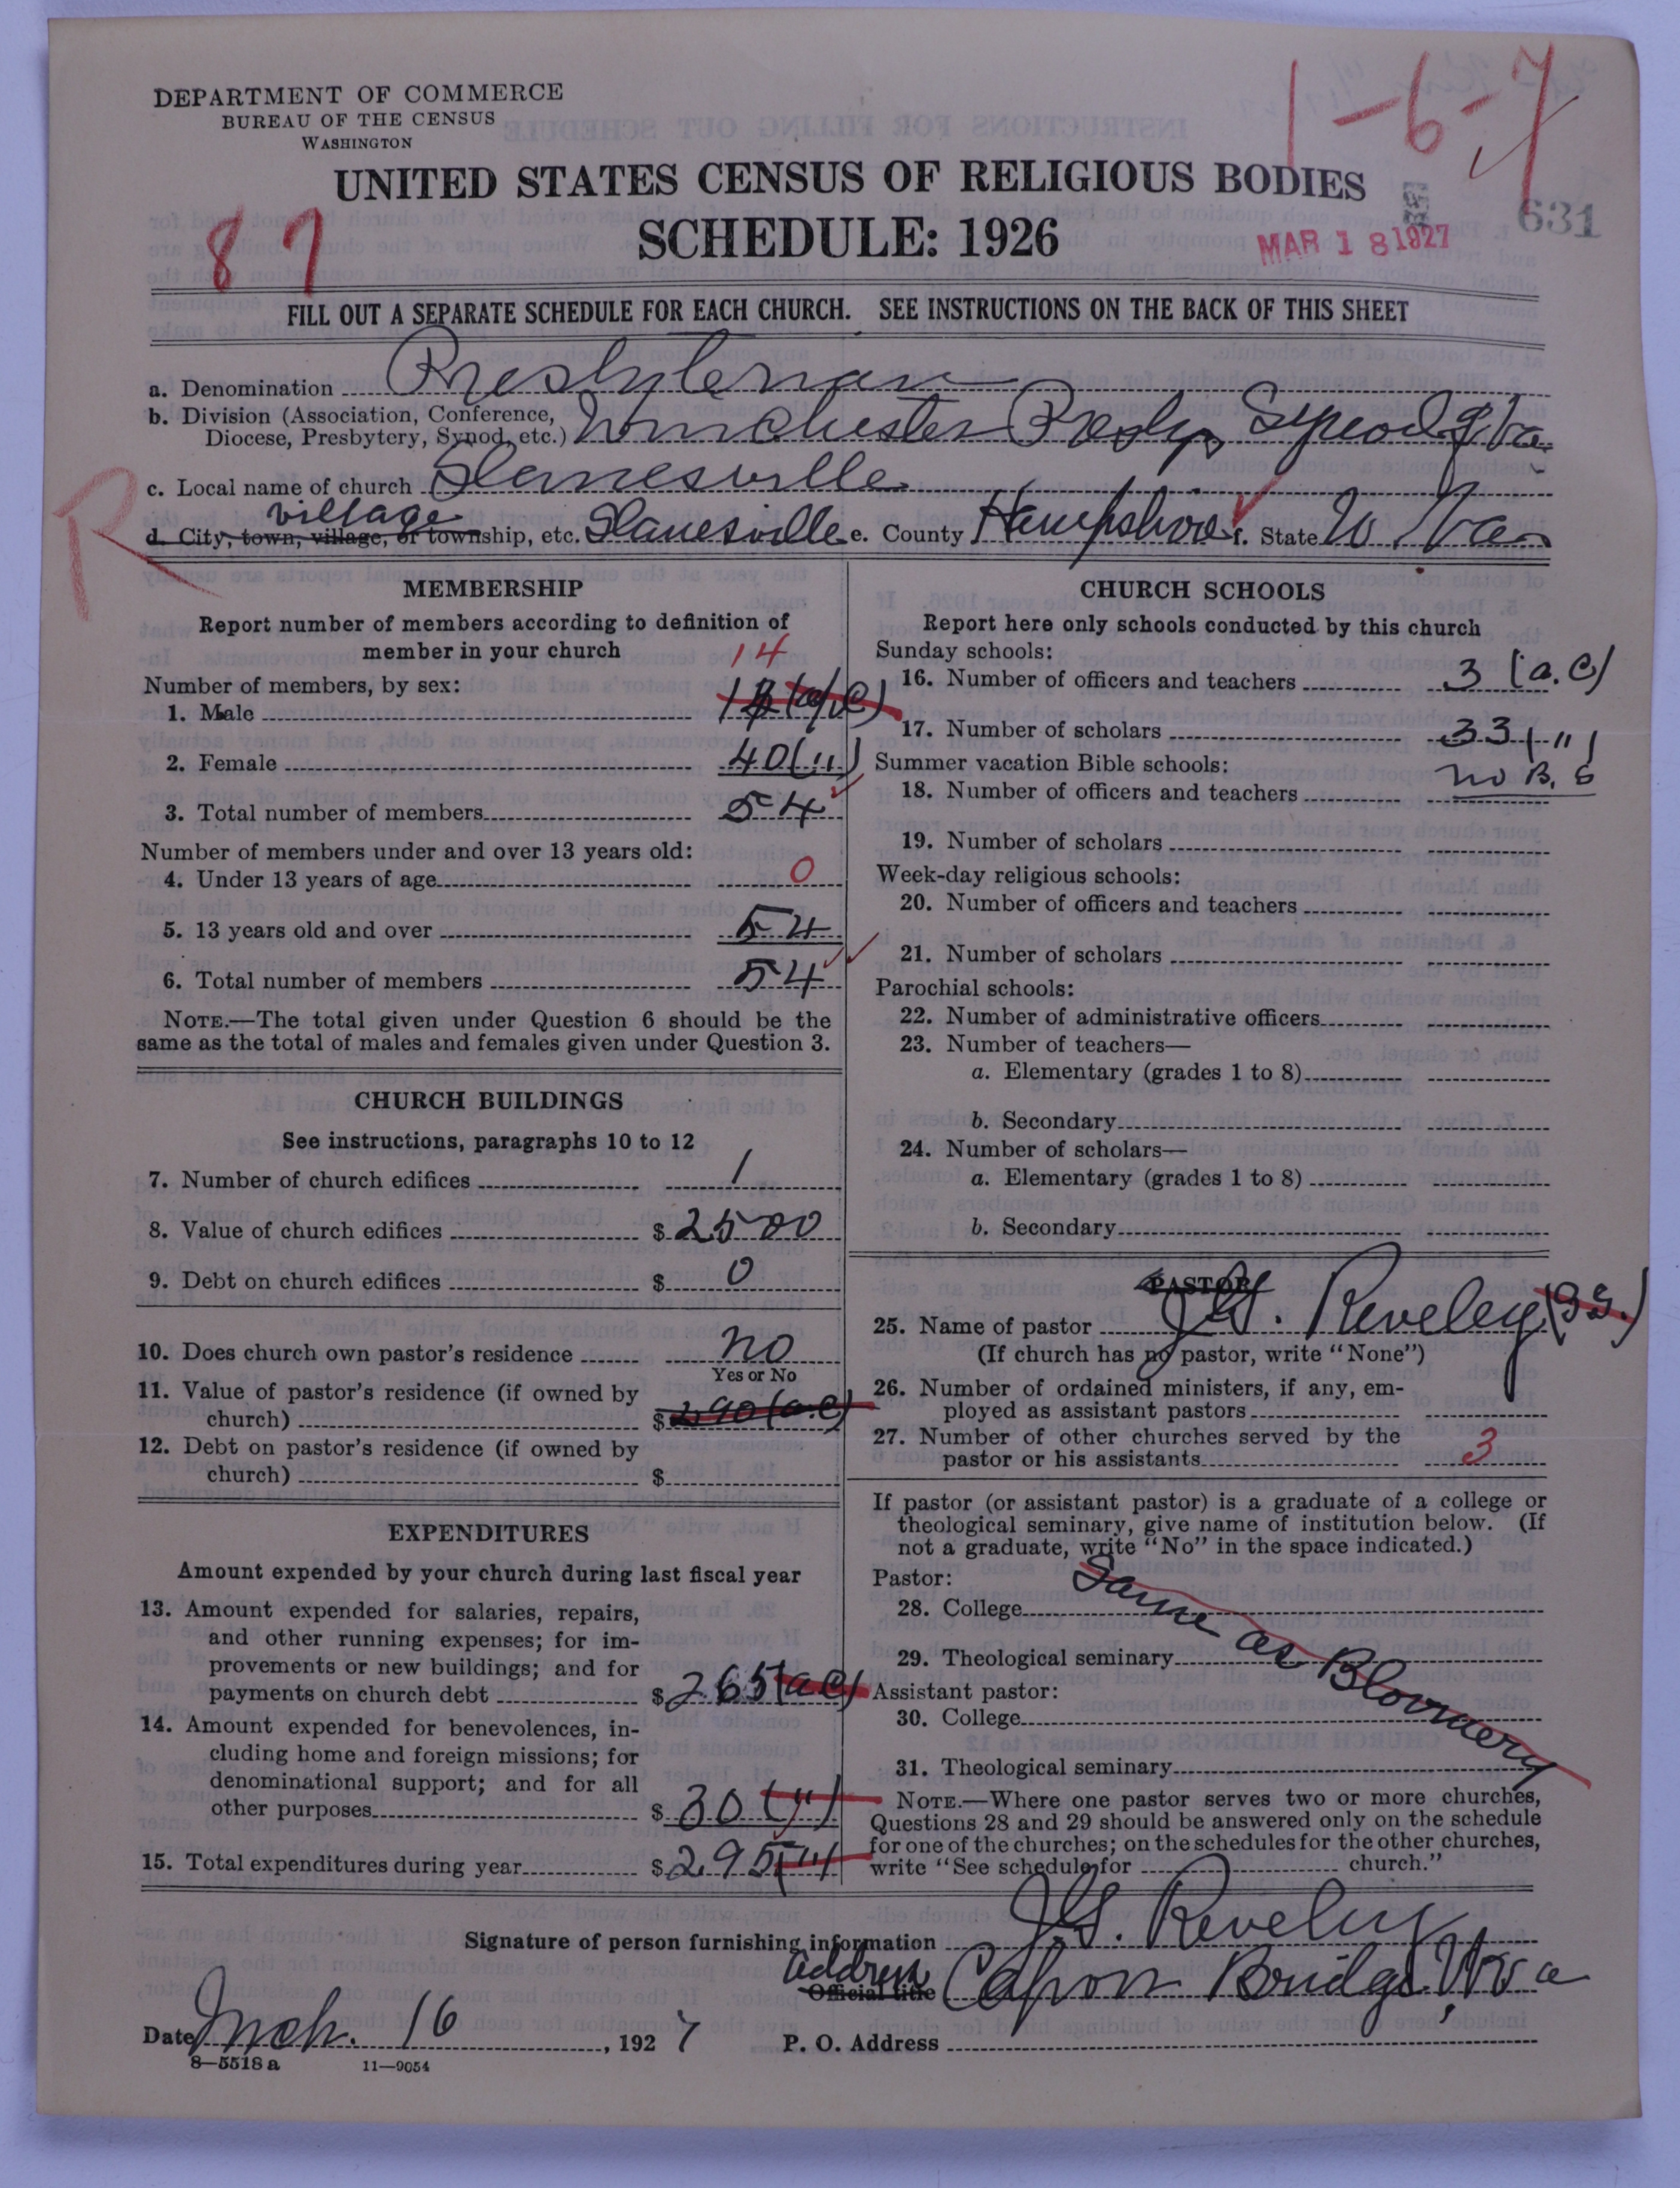 DEPARTMENT OF COMMERCE
BUREAU OF THE CENSUS
WASHINGTON
1-6-7
UNITED STATES CENSUS OF RELIGIOUS BODIES
SCHEDULE: 1926
87
MAR 18 1927
631
FILL OUT A SEPARATE SCHEDULE FOR EACH CHURCH. SEE INSTRUCTIONS ON THE BACK OF THIS SHEET
a. Denomination Presbyterian
b. Division (Association, Conference,
Diocese, Presbytery, Synod, etc.) Winchester Presby, Synod of Va.
c. Local name of church Slanesville
R
village
d. City, town, village, or township, etc. Slanesville e. County Hampshire f. State W. Va
MEMBERSHIP
Report number of members according to definition of
member in your church
Number of members, by sex:
14
1. Male
2. Female 40 (")
3. Total number of members 54
Number of members under and over 13 years old:
4. Under 13 years of age 0
5. 13 years old and over 54
6. Total number of members 54
NOTE.—The total given under Question 6 should be the
same as the total of males and females given under Question 3.
CHURCH BUILDINGS
See instructions, paragraphs 10 to 12
7. Number of church edifices 1
8. Value of church edifices $ 2500
9. Debt on church edifices $ 0
10. Does church own pastor's residence no
Yes or No
11. Value of pastor's residence (if owned by
church) $ 290 (a.c)
12. Debt on pastor's residence (if owned by
church) $
EXPENDITURES
Amount expended by your church during last fiscal year
13. Amount expended for salaries, repairs,
and other running expenses; for im-
provements or new buildings; and for
payments on church debt $ 265 (a.c)
14. Amount expended for benevolences, in-
cluding home and foreign missions; for
denominational support; and for all
other purposes $ 30 (")
15. Total expenditures during year $ 295 (")
CHURCH SCHOOLS
Report here only schools conducted by this church
Sunday schools:
16. Number of officers and teachers 3 (a.c)
17. Number of scholars 33 (")
Summer vacation Bible schools:
no B. S
18. Number of officers and teachers
19. Number of scholars
Week-day religious schools:
20. Number of officers and teachers
21. Number of scholars
Parochial schools:
22. Number of administrative officers
23. Number of teachers—
a. Elementary (grades 1 to 8)
b. Secondary
24. Number of scholars—
a. Elementary (grades 1 to 8)
b. Secondary
PASTOR
25. Name of pastor J. G. Reveley (S.S.)
(If church has no pastor, write "None")
26. Number of ordained ministers, if any, em-
ployed as assistant pastors
27. Number of other churches served by the
pastor or his assistants 3
If pastor (or assistant pastor) is a graduate of a college or
theological seminary, give name of institution below. (If
not a graduate, write "No" in the space indicated.)
Pastor:
Same as Bloomery
28. College
29. Theological seminary
Assistant pastor:
30. College
31. Theological seminary
NOTE.—Where one pastor serves two or more churches,
Questions 28 and 29 should be answered only on the schedule
for one of the churches; on the schedules for the other churches,
write "See schedule for church."
Signature of person furnishing information J. G. Reveley
Address
Official title Capon Bridge, W. Va
Date Mch. 16, 1927
P. O. Address
8—5518 a
11—9054